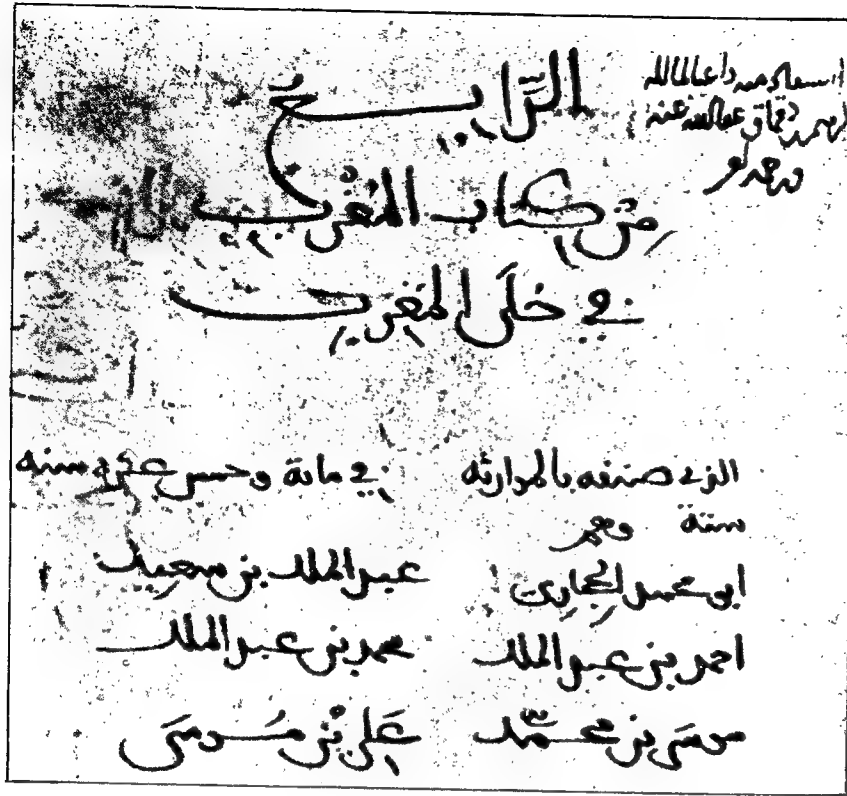 الرَّابِعُ
مِنْ كتاب المُغْرِب
في حُلَى المَغرِب
الذي صنفه بالموارثة في مائة وخمس عشرة سنة
ستة وهم
ابو محمد الحجاري عبد الملك بن سعيد
احمد بن عبد الملك محمد بن عبد الملك
موسَى بن محمّد عَلي بْن مُوسَى